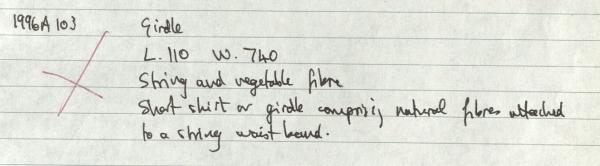 1996A 103 Girdle
L. 110 W. 740
String and vegetable fibre
Short skirt or girdle comprising natural fibres attached
to a string waist band.